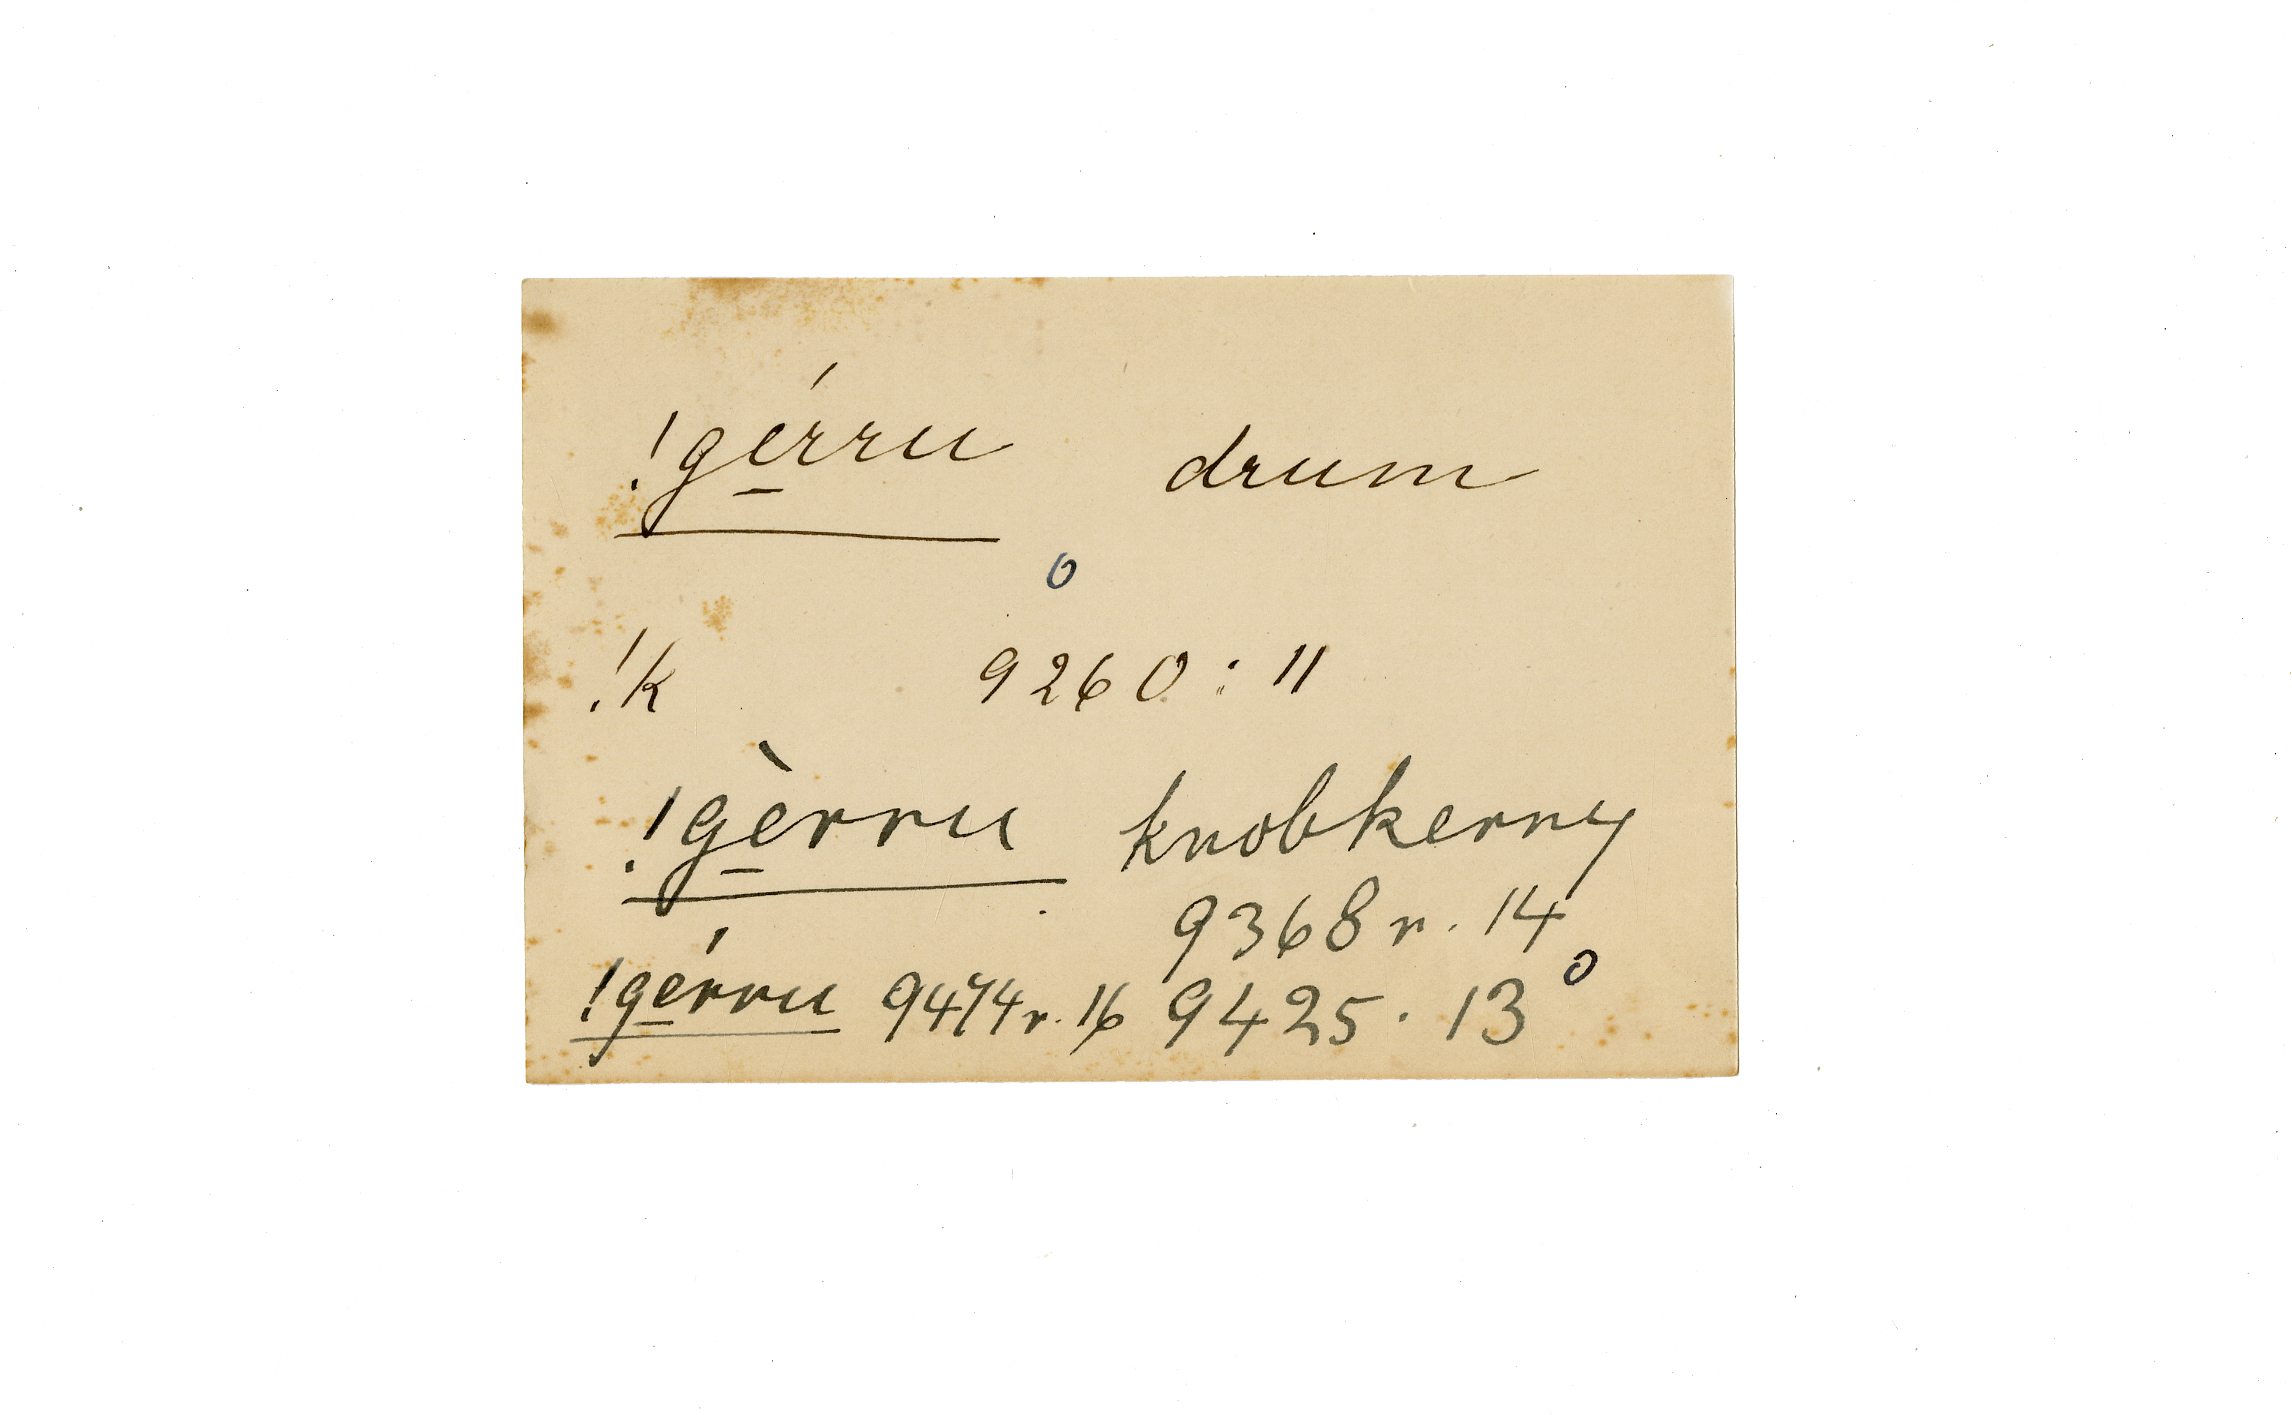 !gé̱rru drum
o
!k 9260 : 11
!gè̱rru knobkerry
9368 r. 14
!gé̱rru 9474 r. 16 9425 . 13 o